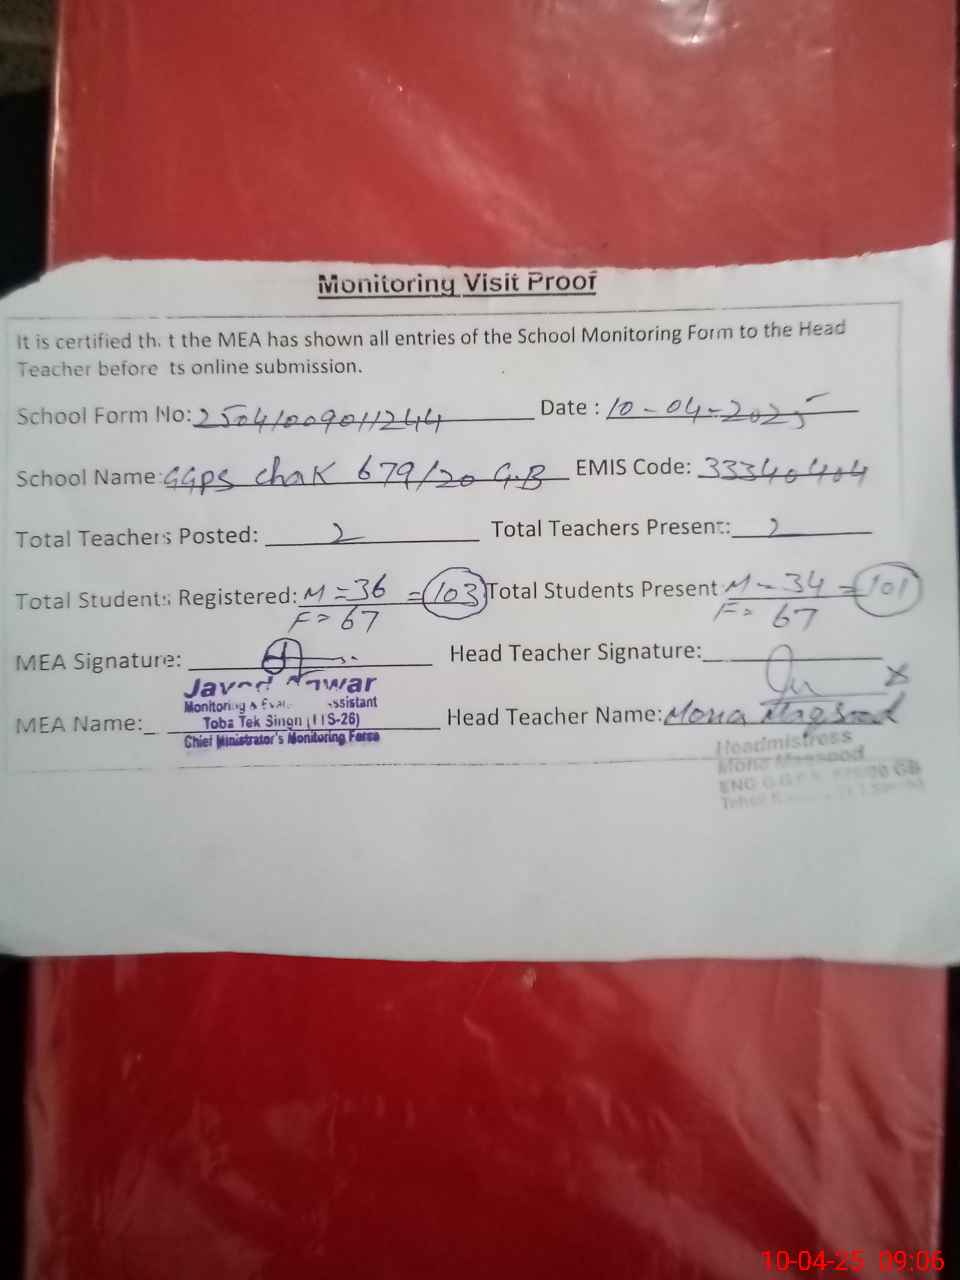 Monitoring Visit Proof
It is certified th t the MEA has shown all entries of the School Monitoring Form to the Head
Teacher before ts online submission.
School Form No: 25041009011244 Date : 10-04-2025
School Name: GGPS chak 679/20 G.B EMIS Code: 33340404
Total Teachers Posted: 2 Total Teachers Present: 2
Total Students Registered: M = 36 = 103 Total Students Present M - 34 = 101
F = 67 F = 67
MEA Signature: Head Teacher Signature:
Javed Anwar
Monitoring & ssistant
MEA Name: Toba Tek Singh Head Teacher Name: Mona Maqsood
Chief Ministrator's Monitoring Force
Headmistress
Mona Maqsood
GB
10-04-25 09:06